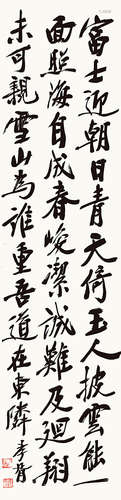 富士迎朝日青天倚玉人披雲能一
面照海自成春峻潔誠難及迴翔
未可親雪山為誰重吾道在東隣 孝胥